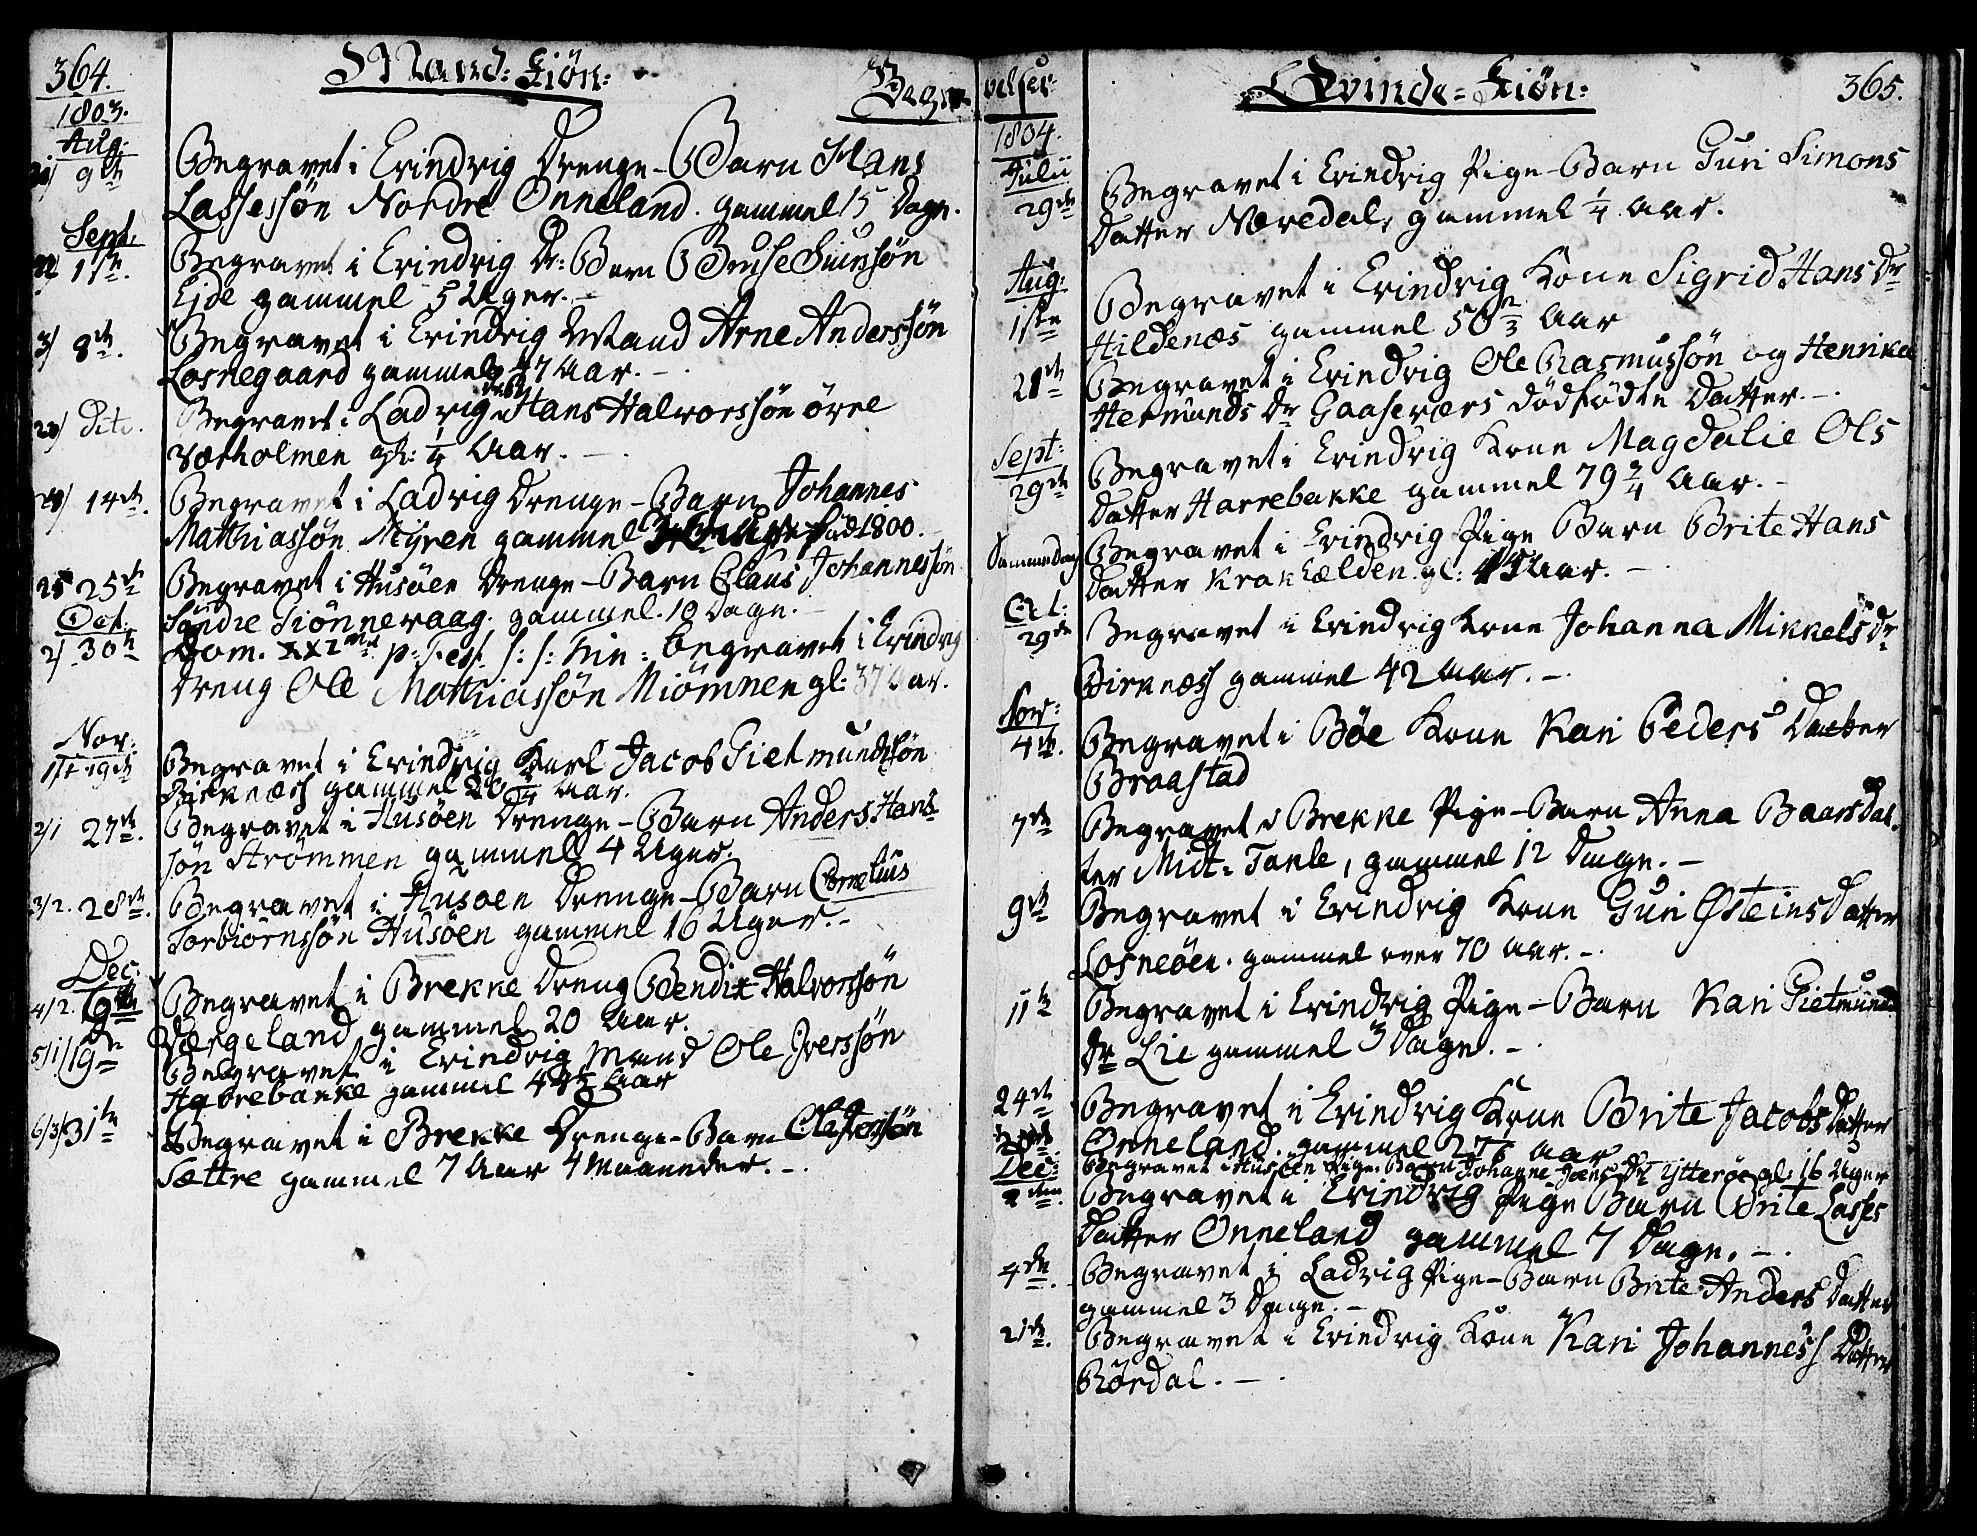 364.
Mand-Kiön:
Begra
1803.
Aug:
9de
Begravet i Evindvig Drenge-Barn Hans
Lassessøn Nordre Onneland. gammel 15 Dage.
Sept.
1ste.
Begravet i Evindvig Dr: Barn
Eide gammel 5 Uger. -
3/ 8de.
Begravet i Evindvig Mand Arne Anderssøn
Losnegaard gammel 47 Aar. -
Dito.
Begravet i Ladvig Hans Halvorssøn övre
Værholmen gl: 1/4 Aar. -
14de.
Begravet i Ladvig Drenge-Barn Johannes
Matthiassøn Myren gammel fød 1800.
25de
Begravet i Husöen Drenge-Barn Claus Johannessøn
Søndre Tiönnevaag. gammel 10 Dage. -
Oct:
2/ 30te
Dom. XXI p: Fest. s: s: Trin: begravet i Evindvig
Dreng Ole Matthiassøn Miömnen gl: 37 Aar.
Nov:
19de
Begravet i Evindvig Karl Jacob Gietmundssøn
Birknæss gammel 20 1/4 Aar.
2/1 27de.
Begravet i Husöen Drenge-Barn Anders Hans
søn Strömmen gammel 4 Uger.
3/2. 28de.
Begravet i Husöen Drenge-Barn Cornelius
Torbiörnssøn Husöen gammel 16 Uger. -
Dec:
4/2. 9de
Begravet i Brekke Dreng Bendix Halvorssøn
Værgeland gammel 20 Aar.
5/1 19de
Begravet i Evindvig Mand Ole Iverssøn
Haverebakke gammel 44 1/2 Aar
6/3 31te
Begravet i Brekke Drenge-Barn Ole Iverssøn
Sættre gammel 7 Aar 4 Maaneder. -
velser
Qvinde-Kiön:
365.
1804.
Julii
29de
Begravet i Evindvig Pige-Barn Guri Simons
Datter Næredal, gammel 1/4 Aar.
Aug:
1ste
Begravet i Evindvig Kone Sigrid Hans Dr
Hildenæs gammel 50 2/3 Aar
28de
Begravet i Evindvig Ole Rasmussøn og Henrika
Hermunds Dr Gaasevers dödfödte Datter. -
Sept:
29de
Begravet i Evindvig Kone Magdalie Ols
Datter Harrebakke gammel 79 3/4 Aar. -
Samme Dag
Begravet i Evindvig Pige Barn Brite Hans
Datter Krakhælden gl: Aar. -
Oct:
29de
Begravet i Evindvig Kone Johanna Mikkels Dr
Birknæss gammel 42 Aar. -
Nov:
4de.
Begravet i Böe Kone Kari Peders Datter
Braastad
7de
Begravet i Brekke Pige-Barn Anna Baars Dat-
ter Midt-Tanle, gammel 12 Dage. -
9de
Begravet i Evindvig Kone Guri Østeins Datter
Losneöen. gammel over 70 Aar. -
11te
Begravet i Evindvig Pige-Barn Kari Gietmunds
Dr Lie gammel 3 Dage. -
24de
Begravet i Evindvig Kone Brite Jacobs Datter
Onneland. gammel 27 Aar
Begravet i Husöen Pige-Barn Johanne Joens Dr Ytteröe gl: 16 Uger
Dec:
2den.
Begravet i Evindvig Pige Barn Brite Lasses
Datter Onneland gammel 7 Dage. -
4de
Begravet i Ladvig Pige-Barn Brite Anders Datter
gammel 3 Dage. -
21de.
Begravet i Evindvig Kone Kari Johanness Datter
Rördal. -